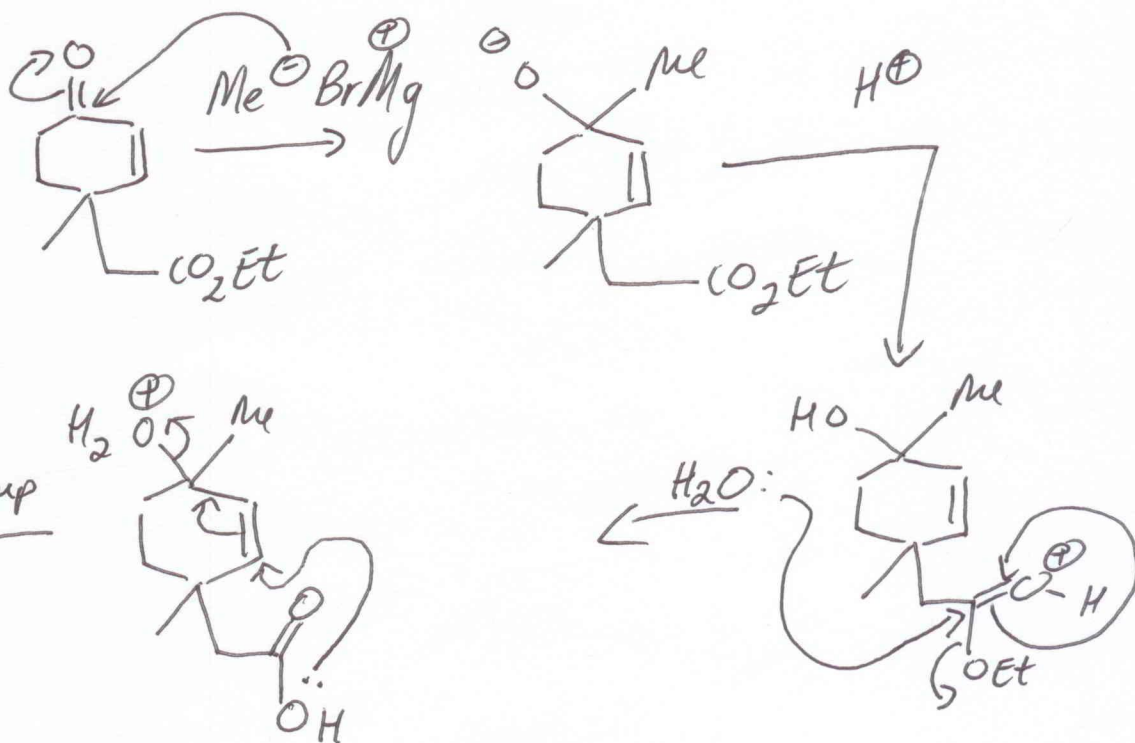 O
Me⊖ BrMg⊕
CO2Et
⊖
O
Me
H⊕
CO2Et
⊕
H2O
Me
up
O
OH
H2O:
HO
Me
⊕
O-H
OEt